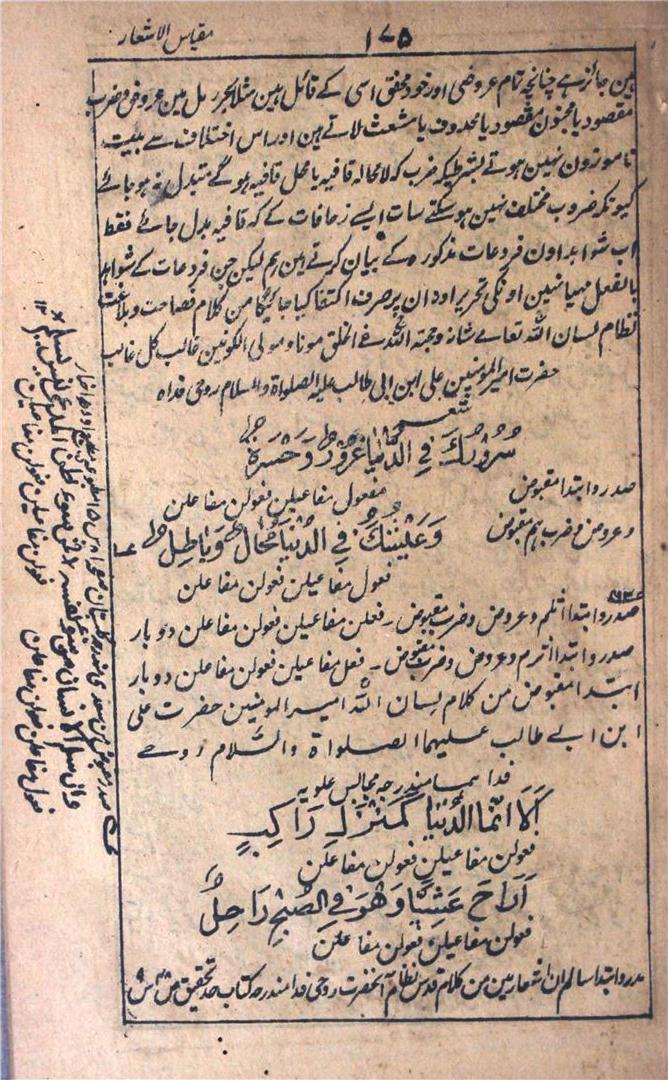 مقیاس الاشعار
۱۷۵
ہین جائز ہے چنانچہ تمام عروضی اور خود محقق اسی کے قائل ہین مثلا بحر رمل مین عروض و ضرب
مقصود یا مخبون مقصود یا محذوف یا مشعث لاتے ہین اور اس اختلاف سے بیت
ناموزون نہین ہوتے بشرطیکہ ضرب کہ لامحالہ قافیہ یا محل قافیہ ہو گے متبدل نہ ہو جائے
کیونکہ ضروب مختلف نہین ہو سکتے سات ایسے زحافات کے کہ قافیہ بدل جائے فقط
اب شواہد اون فروعات مذکورہ کے بیان کرتے ہین ہم لیکن جن فروعات کے شواہد
بالفعل مہیا نہین اونکی تحریر اوزان پر صرف اکتفا کیا جائیگا من کلام فصاحت و بلاغت
نظام لسان اللہ تعالے شانہ وحجتہ اللہ فے الخلق مونا و مولی الکونین غالب کل غالب
حضرت امیر المومنین علی ابن ابی طالب علیہ الصلواۃ والسلام روحی فداہ
شعر
سُرُوْرُكَ فِي الدُّنْيَا غُرُوْرٌ وَحَسْرَةٌ
صدر و ابتدا مقبوض
فعول مفاعیلن فعولن مفاعلن
وَعَيْشُكَ فِي الدُّنْيَا مُحَالٌ وَبَاطِلٌ
و عروض و ضرب ہم مقبوض
فعول مفاعیلن فعولن مفاعلن
صدر و ابتدا اثلم و عروض و ضرب مقبوض ۔ فعلن مفاعیلن فعولن مفاعلن دو بار
صدر و ابتدا اثرم و عروض و ضرب مقبوض ۔ فعل مفاعیلن فعولن مفاعلن دو بار
ابتدا مقبوض من کلام لسان اللہ امیر المومنین حضرت علی
ابن ابے طالب علیہما الصلواۃ والسلام روحے
فداہما مندرجہ مجالس علویہ
اَلَا اِنَّمَا الدُّنْيَا كَمَنْزِلِ رَاكِبٍ
فعولن مفاعیلن فعولن مفاعلن
اَرَاحَ عَشِيًّا وَهُوَ فِي الصُّبْحِ رَاحِلٌ
فعولن مفاعیلن فعولن مفاعلن
صدر و ابتدا سالم ان اشعار مین من کلام قدس نظام آنحضرت روحی فدا مندرجہ کتاب حد تحقیق ص
فعول مفاعلن فعولن مفاعلن
فعولن مفاعیلن فعولن مفاعیلن